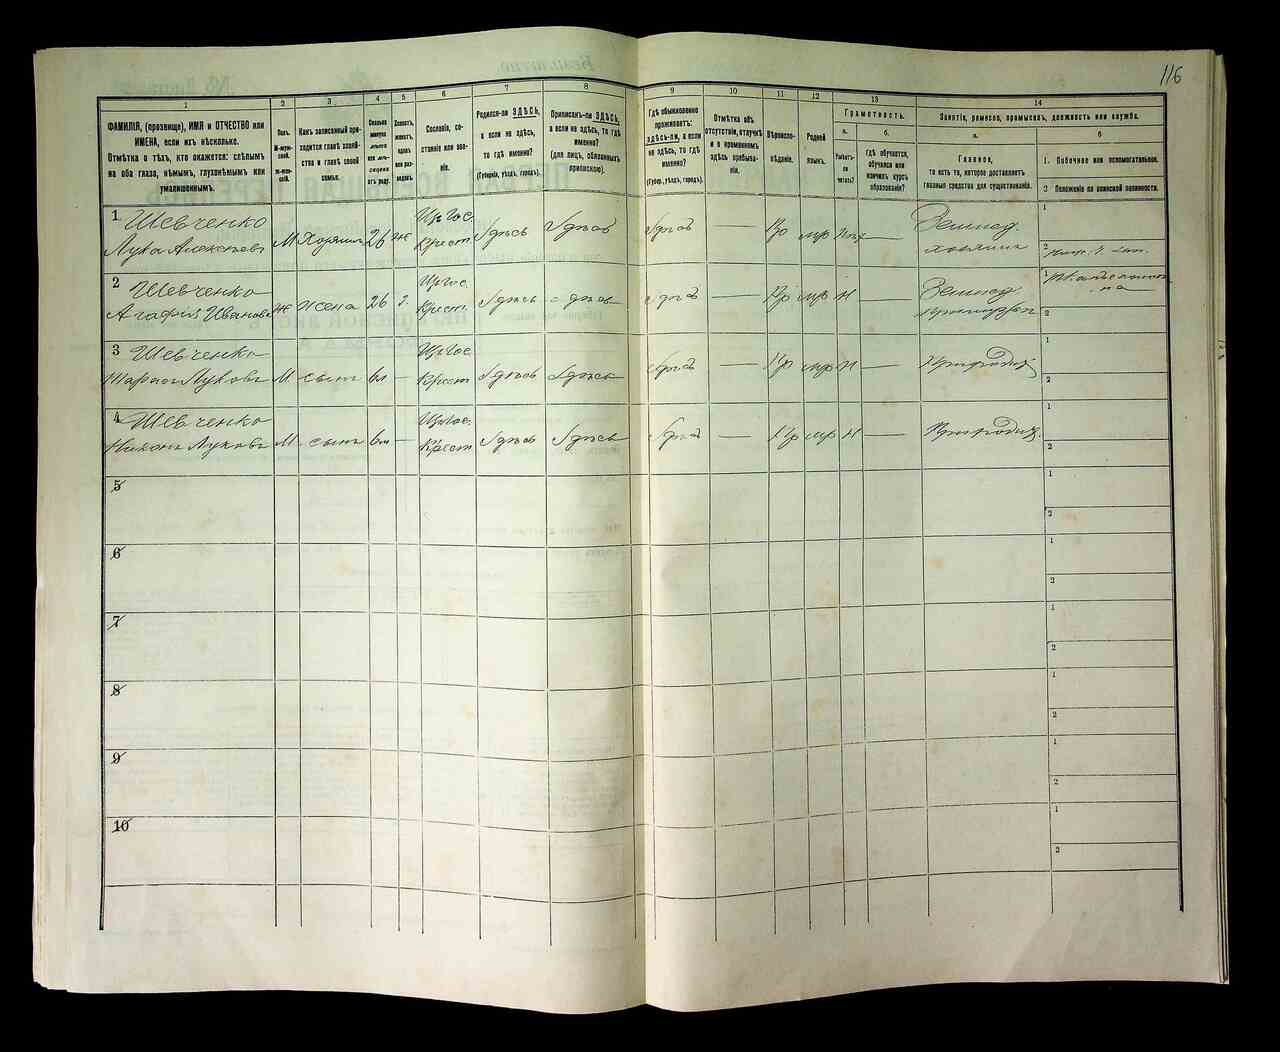 116
1
2
3
4
5
6
7
8
9
10
11
12
13
14
ФАМИЛІЯ, (прозвище), ИМЯ и ОТЧЕСТВО или
ИМЕНА, если ихъ нѣсколько.
Отмѣтка о тѣхъ, кто окажется: слѣпымъ
на оба глаза, нѣмымъ, глухонѣмымъ или
умалишеннымъ.
Полъ.
М-муж-
ской.
Ж-жен-
скій.
Какъ записанный при-
ходится главѣ хозяй-
ства и главѣ своей
семьи.
Сколько
минуло
лѣтъ
или мѣ-
сяцевъ
отъ роду.
Холостъ,
женатъ,
вдовъ
или раз-
веденъ.
Сословіе, со-
стояніе или зва-
ніе.
Родился-ли ЗДѢСЬ,
а если не здѣсь,
то гдѣ именно?
(Губернія, уѣздъ, городъ).
Приписанъ-ли ЗДѢСЬ,
а если не здѣсь, то гдѣ
именно?
(для лицъ, обязанныхъ
припискою).
Гдѣ обыкновенно
проживаетъ:
ЗДѢСЬ-ли, а если
не здѣсь, то гдѣ
именно?
(Губер., уѣздъ, городъ).
Отмѣтка объ
отсутствіи, отлучкѣ
и о временномъ
здѣсь пребыва-
ніи.
Вѣроиспо-
вѣданіе.
Родной
языкъ.
Грамотность.
а.
б.
Умѣетъ-
ли
читать?
гдѣ обучается,
обучался или
кончилъ курсъ
образованія?
Занятіе, ремесло, промыселъ, должность или служба.
а.
б
Главное,
то есть то, которое доставляетъ
главныя средства для существованія.
1. Побочное или вспомогательное.
2 Положеніе по воинской повинности.
1. Шевченко Цр Гос. Земпед. 1
Лука Алексѣевъ М Хозяинъ 26 ж Крест. Здѣсь Здѣсь Здѣсь — мр — хозяинъ 2
2 Шевченко Цр Гос. Земпед. 1
Агафія Иванова Ж жена 26 Крест. Здѣсь Здѣсь Здѣсь — Пр мр н 2
3 Шевченко Цр Гос. 1
Тарасъ Луковъ М сынъ — Крест Здѣсь Здѣсь Здѣсь — Пр мр н — 2
4 Шевченко Цр Гос. 1
Никонъ Луковъ М сынъ — Крест Здѣсь Здѣсь Здѣсь — Пр мр н — 2
5 1
2
6 1
2
7 1
2
8 1
2
9 1
2
10 1
2